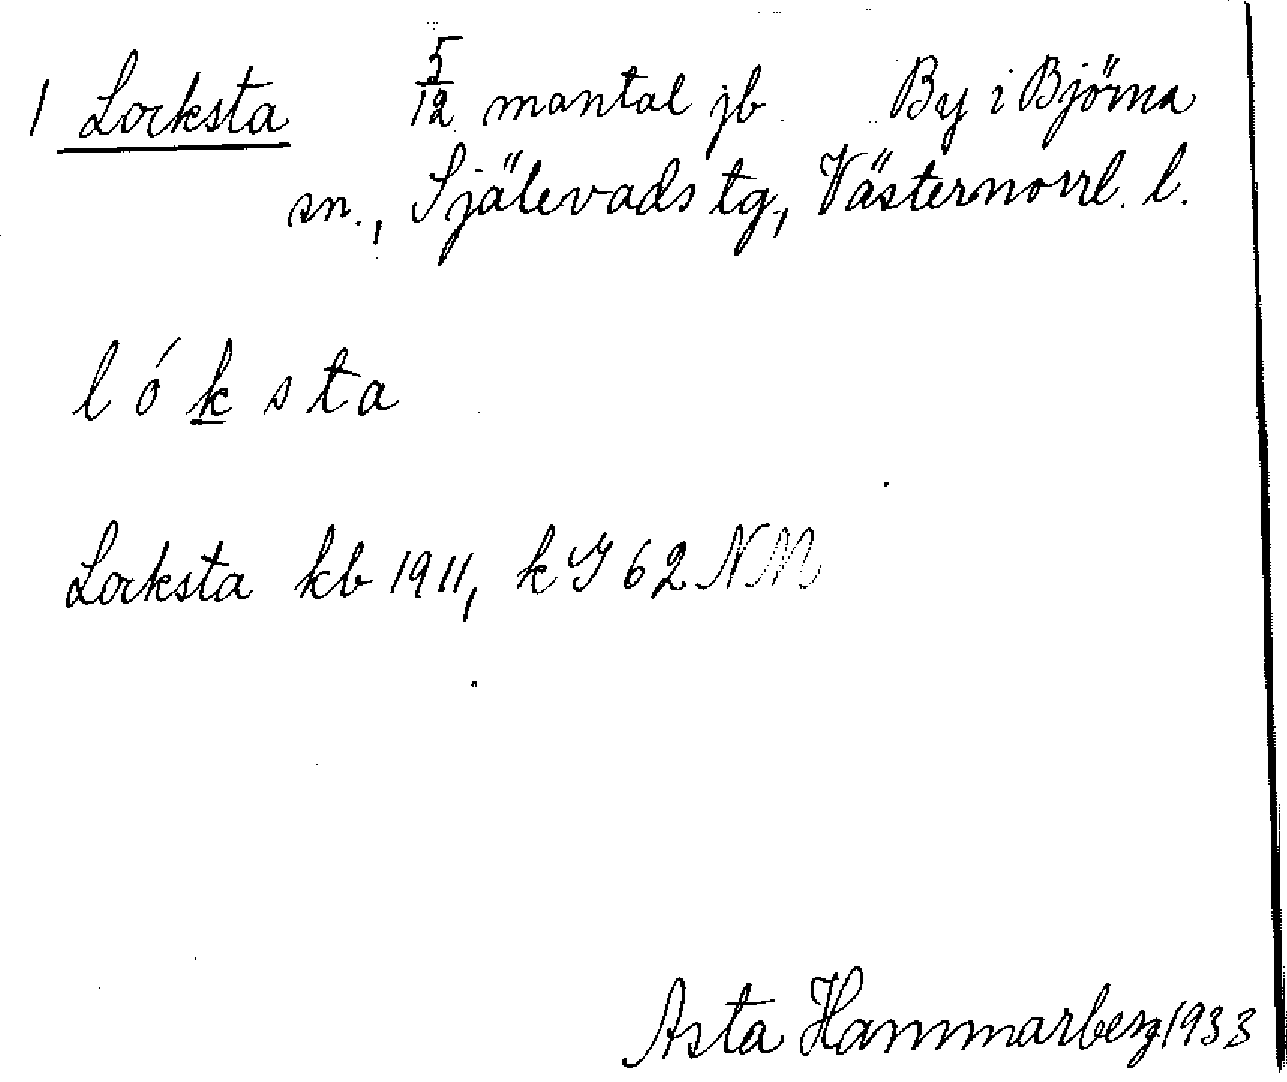 1 Locksta 5/12 mantal jb By i Björna
sn., Själevads tg, Västernorrl. l.
l ó k s t a
Locksta kb 1911, k G 62 NM
Asta Hammarberg 1933